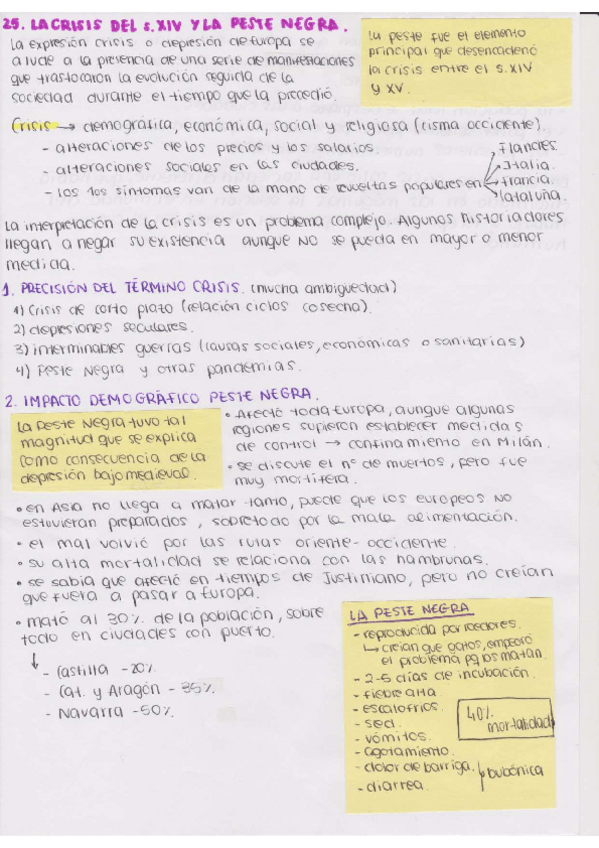 25. LA CRISIS DEL s. XIV Y LA PESTE NEGRA.
La expresión crisis o depresión de Europa se
alude a la presencia de una serie de manifestaciones
que trastocaron la evolución seguida de la
sociedad durante el tiempo que la precedió.
La peste fue el elemento
principal que desencadenó
la crisis entre el s. XIV
y XV.
Crisis → demográfica, económica, social y religiosa (cisma occidente)
- alteraciones de los precios y los salarios.
- alteraciones sociales en las ciudades.
- los 1os síntomas van de la mano de revueltas populares en
Flandes.
Italia.
Francia
Cataluña.
La interpretación de la crisis es un problema complejo. Algunos historiadores
llegan a negar su existencia aunque NO se pueda en mayor o menor
medida.
1. PRECISIÓN DEL TÉRMINO CRISIS. (mucha ambigüedad)
1) Crisis de corto plazo (relación ciclos cosecha).
2) depresiones seculares.
3) interminables guerras (causas sociales, económicas o sanitarias)
4) Peste Negra y otras pandemias.
2. IMPACTO DEMOGRÁFICO PESTE NEGRA.
La Peste Negra tuvo tal
magnitud que se explica
como consecuencia de la
depresión bajomedieval.
• Afectó toda Europa, aunque algunas
regiones supieron establecer medidas
de control → confinamiento en Milán.
• se discute el nº de muertos, pero fue
muy mortífera.
• en Asia no llega a matar tanto, puede que los europeos NO
estuvieran preparados, sobretodo por la mala alimentación.
• el mal volvió por las rutas oriente-occidente.
• su alta mortalidad se relaciona con las hambrunas.
• se sabía que afectó en tiempos de Justiniano, pero no creían
que fuera a pasar a Europa.
• mató al 30% de la población, sobre
todo en ciudades con puerto.
- Castilla - 20%
- Cat. y Aragón - 35%
- Navarra - 50%
LA PESTE NEGRA
- reproducida por roedores.
↳ creían que gatos, empeoró
el problema pq los matan.
- 2-5 días de incubación.
- fiebre alta
- escalofríos.
- sed.
- vómitos.
- agotamiento.
- dolor de barriga.
- diarrea.
40%
mortalidad
bubónica